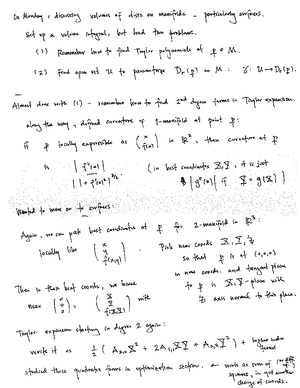 On Monday, discussing volumes of discs on manifolds - particularly surfaces.
Set up a volume integral, but had two problems.
(1) Remember how to find Taylor polynomials at p ∈ M.
(2) Find open set U to parametrize D_r(p) on M : γ: U → D_r(p).
Almost done with (1) - remember how to find 2nd degree terms in Taylor expansion.
Along the way, defined curvature of 1-manifold at point p:
if p locally expressible as (x f(x)) in ℝ², then curvature at p
is |f''(0)| / |1 + f'(0)²|^3/2.
(in best coordinates X, Y, it is just
|g''(0)| if Y = g(X))
Wanted to move on to surfaces:
Again, we can pick best coordinates at p for 2-manifold in ℝ³:
locally like (x y f(x,y)). Pick new coords X, Y, Z
so that p is at (0,0,0)
in new coords. and tangent plane
to p is X,Y-plane with
Z axis normal to this plane.
Then in these best coords, we have
near (0 0 0), (X Y f(X,Y)) with
Taylor expansion starting in degree 2 again:
Write it as ½ (A₂,₀X² + 2A₁,₁XY + A₀,₂Y²) + higher order terms
studied these quadratic forms in optimization section. write as sum of
squares, in yet another
change of coords.